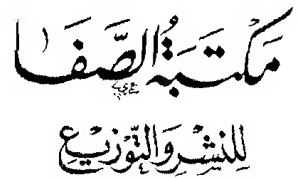 مَكتَبَةُ الصَّفَا
لِلنَشْرِ وَالتَّوْزِيعِ